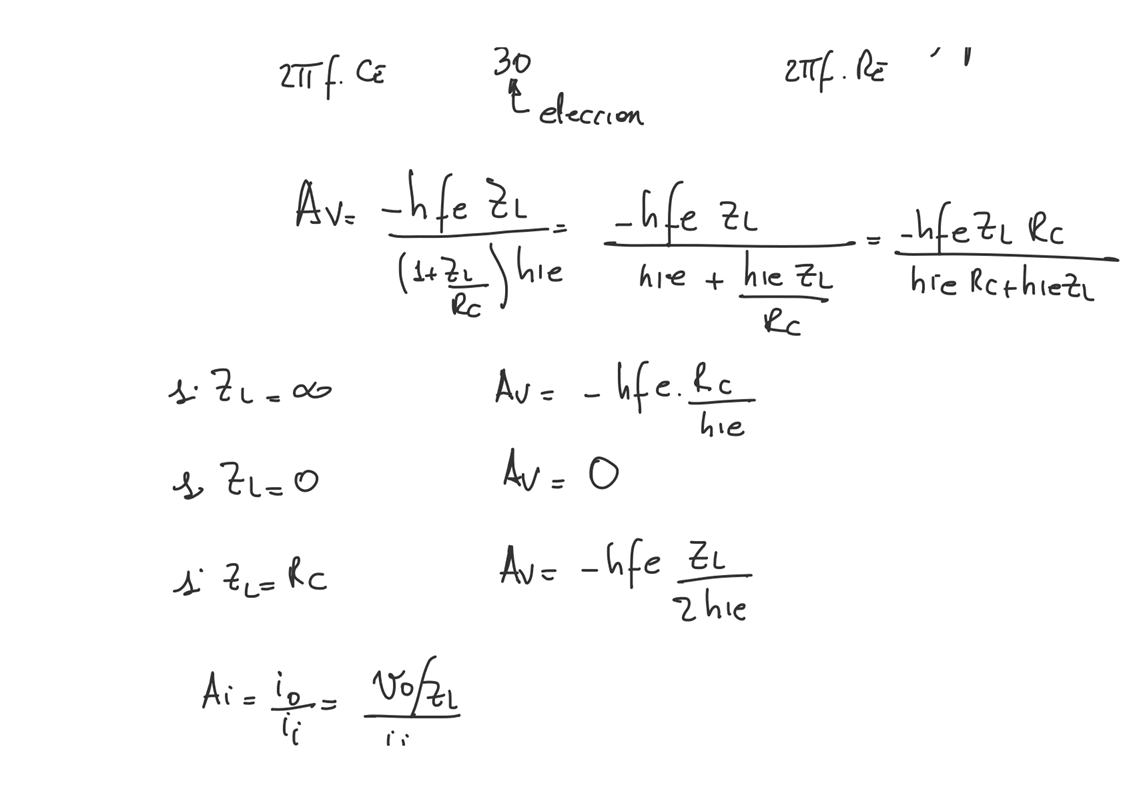 2πf. CE 30 2πf. RE
elección
Av= -hfe ZL / (1+ZL/Rc) hie = -hfe ZL / hie + hie ZL/Rc = -hfe ZL Rc / hie Rc+hieZL
si ZL = ∞ Av = - hfe. Rc/hie
si ZL=0 Av = 0
si ZL=Rc Av= -hfe ZL/2hie
Ai = io/ii = vo/ZL / ii